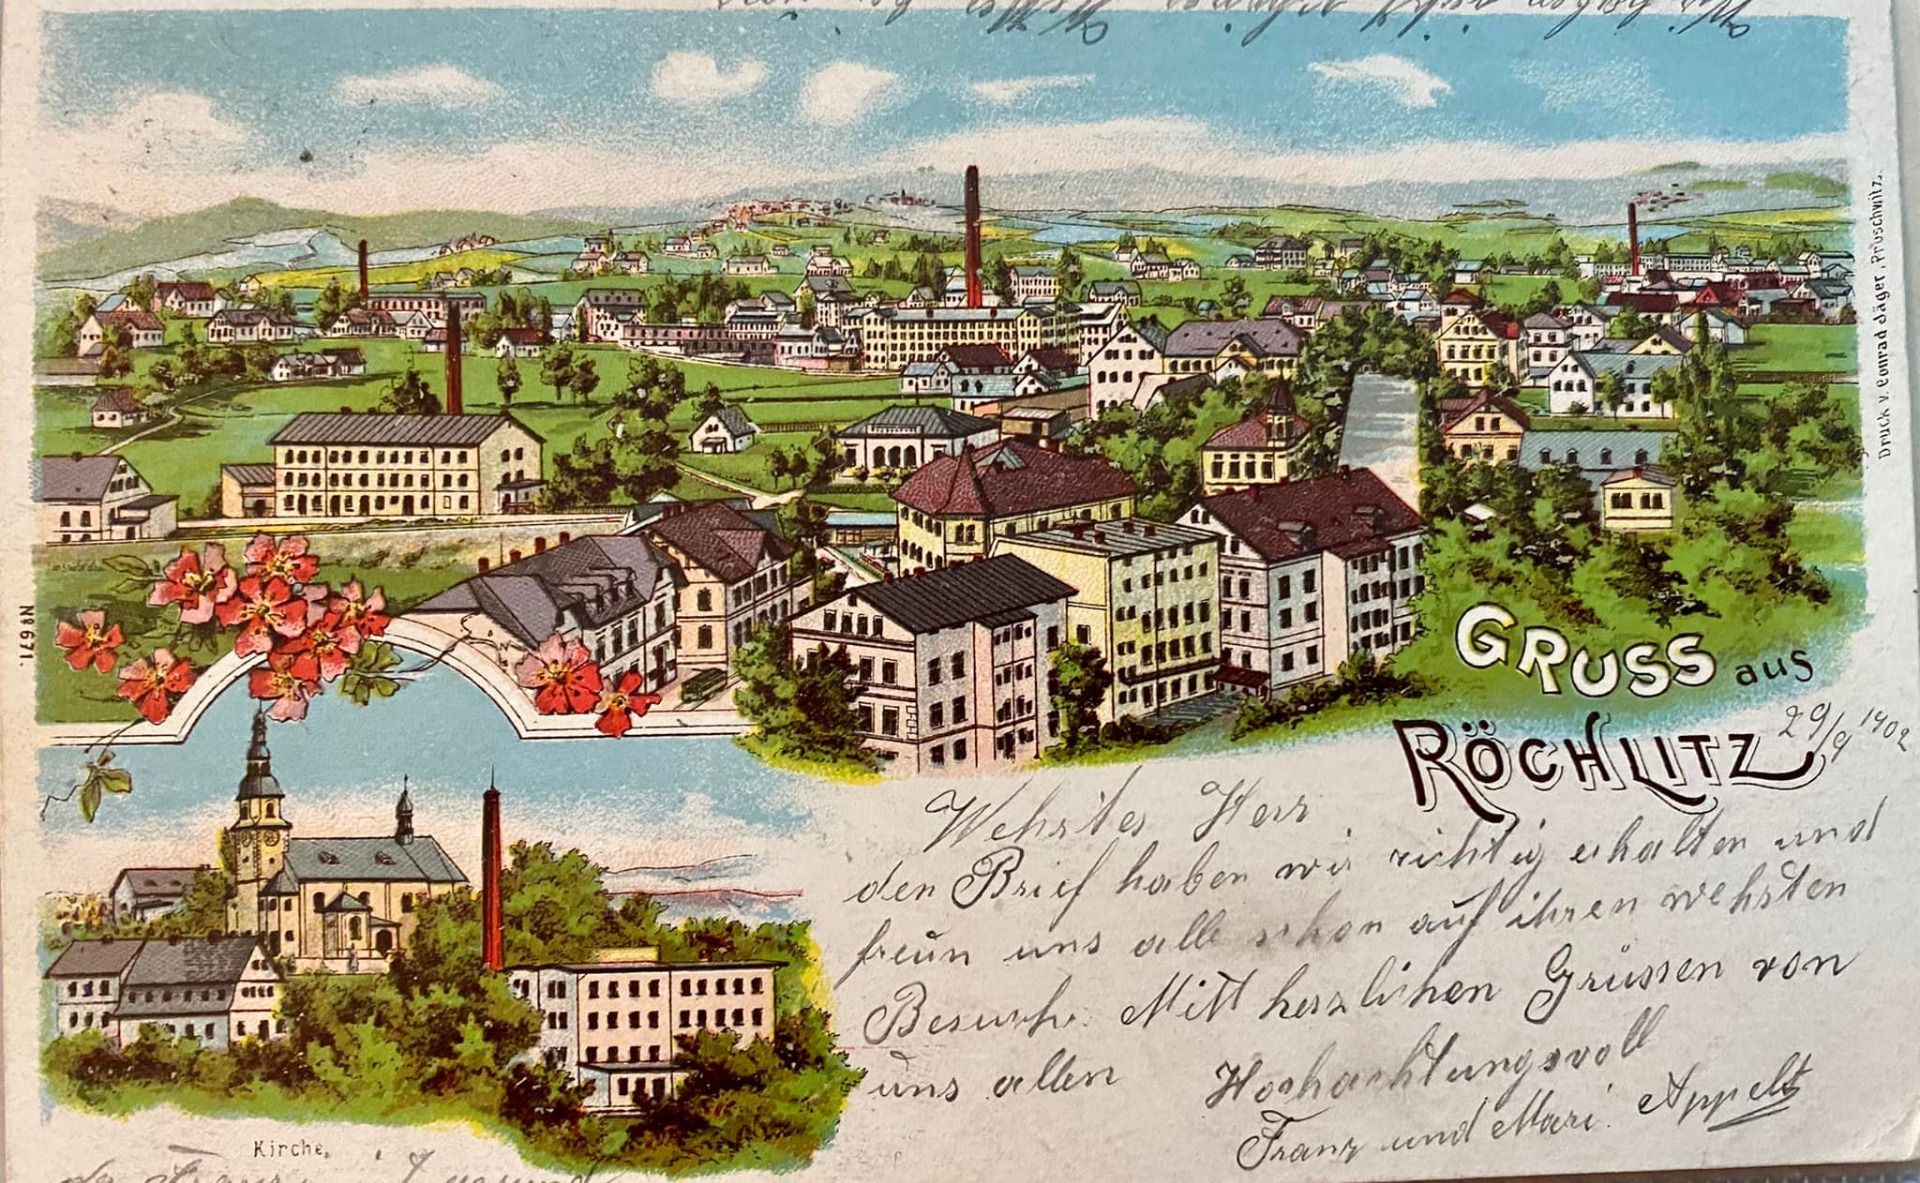 GRUSS aus
RÖCHLITZ
29/9 1902
Druck v. Conrad Jäger, Pröschwitz.
№ 8671.
Wehrter Herr
den Brief haben wir richtig erhalten und
freün uns alle schon auf ihren wehrten
Besuch. Mitt herzlichen Grüssen von
uns allen Hochachtungsvoll
Franz und Mari Appelt
Kirche.